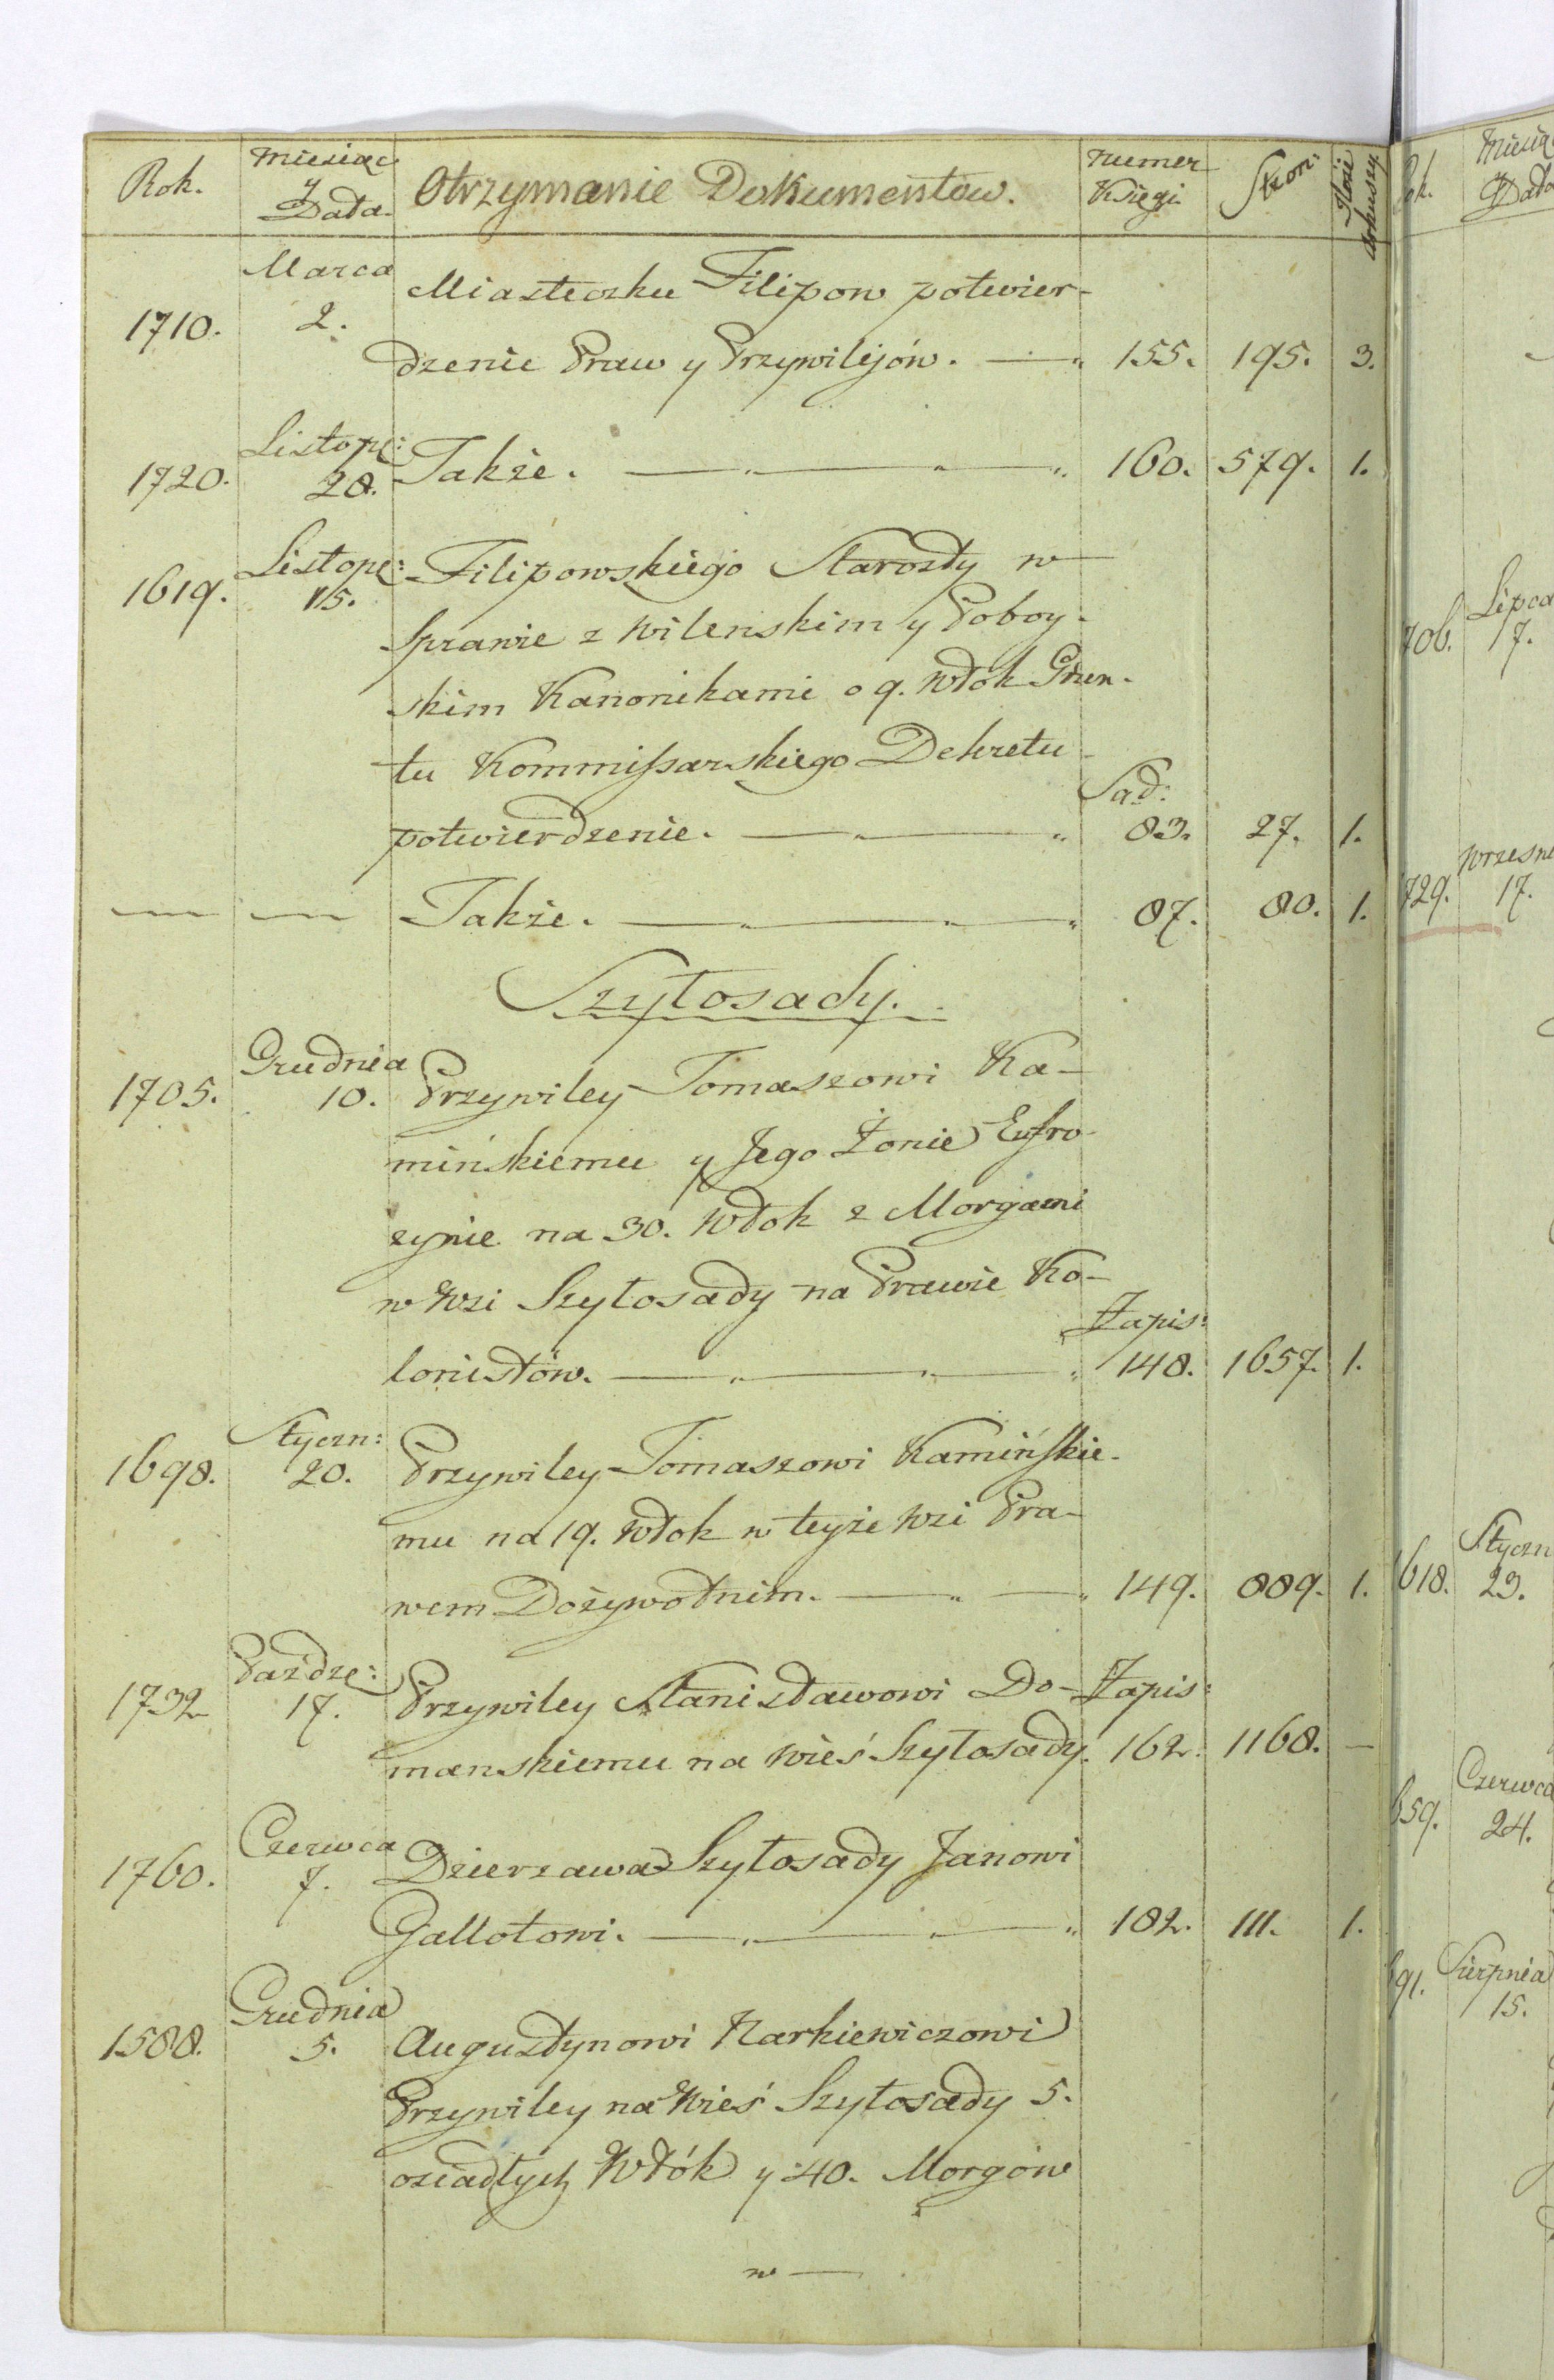 Rok. Miesiąc y Data. Otrzymanie Dokumentów. Numer Księgi Stron: Ilość Arkuszy
Marca
Miasteczku Filipow potwier-
1710. 2.
dzenie Praw y Przywilejów. 155. 195. 3.
Listopa:
1720. 28. Także. 160. 579. 1.
Listopa:
1619. 15. Filipowskiego Starosty w
Sprawie z Wilenskim y Poboy-
skim Kanonikami o 9. Włok Grun-
tu Kommissarskiego Dekretu
Sąd:
potwierdzenie. 83. 27. 1.
Także. 87. 80. 1.
Szyłosady.
Grudnia
1705. 10. Przywiley Tomaszowi Ka-
mińskiemu y Jego Żonie Eufro-
zynie na 30. Włok z Morgami
w Wsi Szyłosady na Prawie Ko-
Zapis:
lonistów. 148. 1657. 1.
Styczn:
1698. 20. Przywiley Tomaszowi Kamińskie-
mu na 19. Włok w teyże Wsi Pra-
wem Dożywotnim. 149. 889. 1.
Paźdze:
1732 17. Przywiley Stanisławowi Do- Zapis:
manskiemu na Wieś Szyłosady. 162. 1168. —
Czerwca
1760. 7. Dzierzawa Szyłosady Janowi
Gallotowi. 182. 111. 1.
Grudnia
1588. 5. Augustynowi Narkiewiczowi
Przywiley na Wieś Szyłosady 5.
osiadłych Włók y 40. Morgów
w —
Data
Lipca
706. 17.
Wrzesn
729. 17.
Styczn
618. 23.
Czerwca
659. 24.
Sierpnia
691. 15.